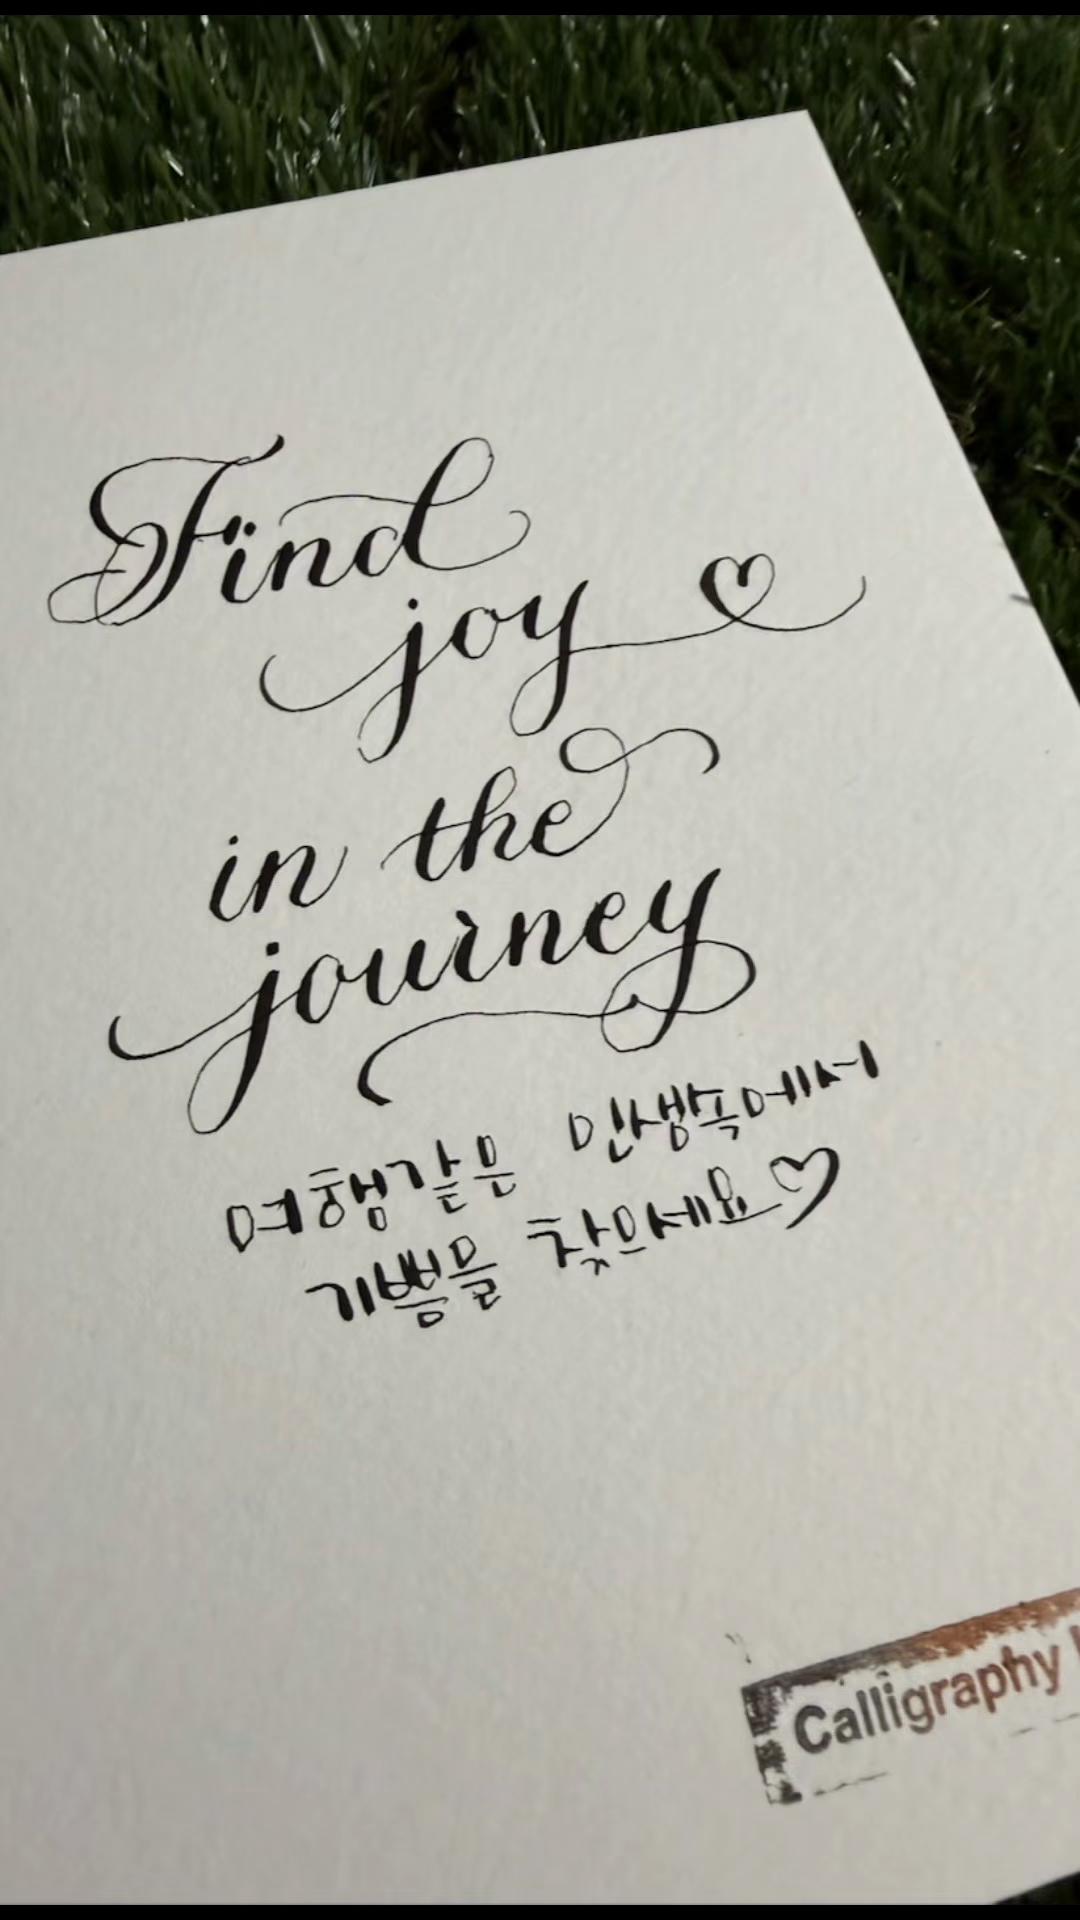 Find
joy ♡
in the
journey
여행같은 인생속에서
기쁨을 찾으세요♡
Calligraphy